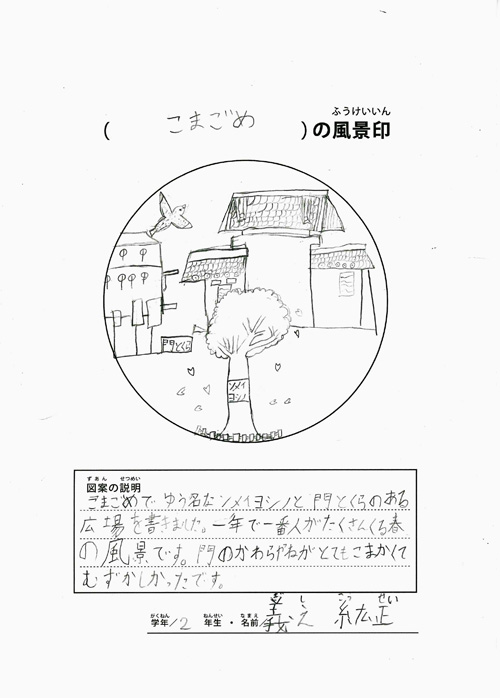 ふうけいいん
( こまごめ )の風景印
門とくら
ソメイ
ヨシノ
ずあん せつめい
図案の説明
こまごめでゆう名なソメイヨシノと門とくらのある
広場を書きました。一年で一番人がたくさんくる春
の風景です。門のかわらやねがとてもこまかくて
むずかしかったです。
がくねん ねんせい なまえ
学年/2 年生・名前